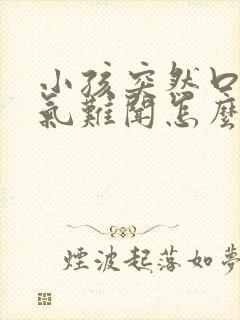 小孩突然口
氣難聞怎麼
煙波起落如夢